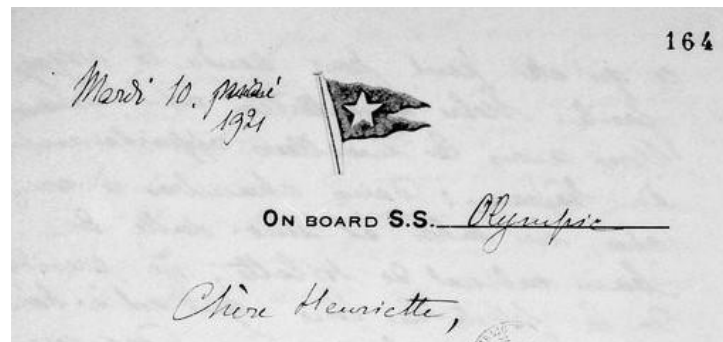 164
Mardi 10.
1921
ON BOARD S.S. Olympic
Chère Henriette,